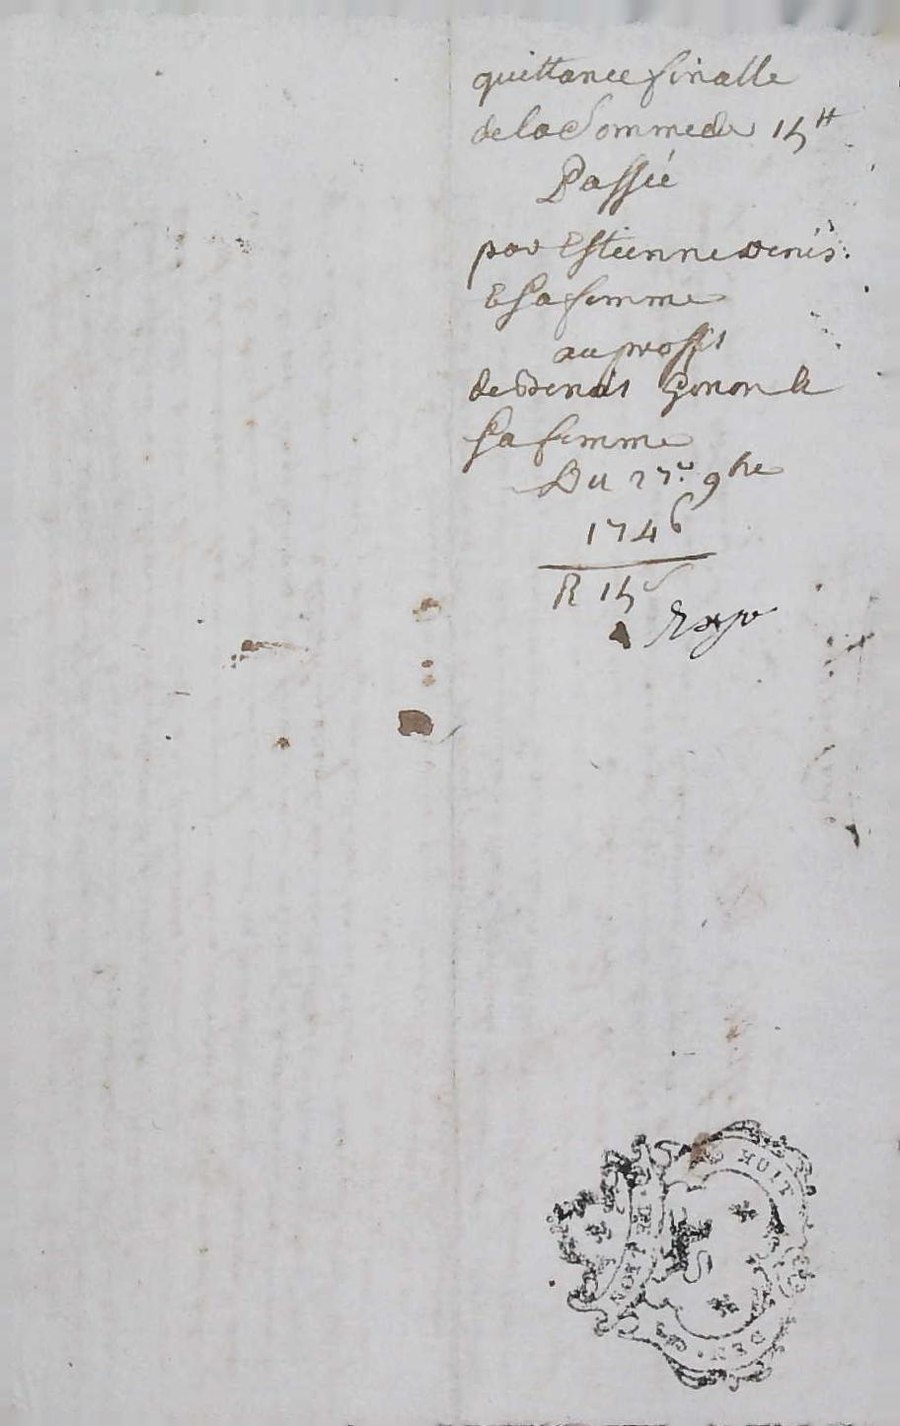 quittance finalle
de la Somme de 15 ₶
Passée
par Estienne Denis
& Sa femme
au proffit
de Benoit Gonon &
Sa femme
Du 27e 9bre
1746
R 15 s
HUIT
DEN.